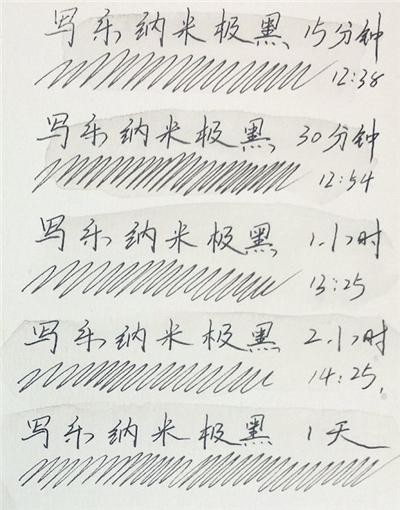 写乐纳米极黑 15分钟
12:38
写乐纳米极黑 30分钟
12:54
写乐纳米极黑 1小时
13:25
写乐纳米极黑 2小时
14:25.
写乐纳米极黑 1天